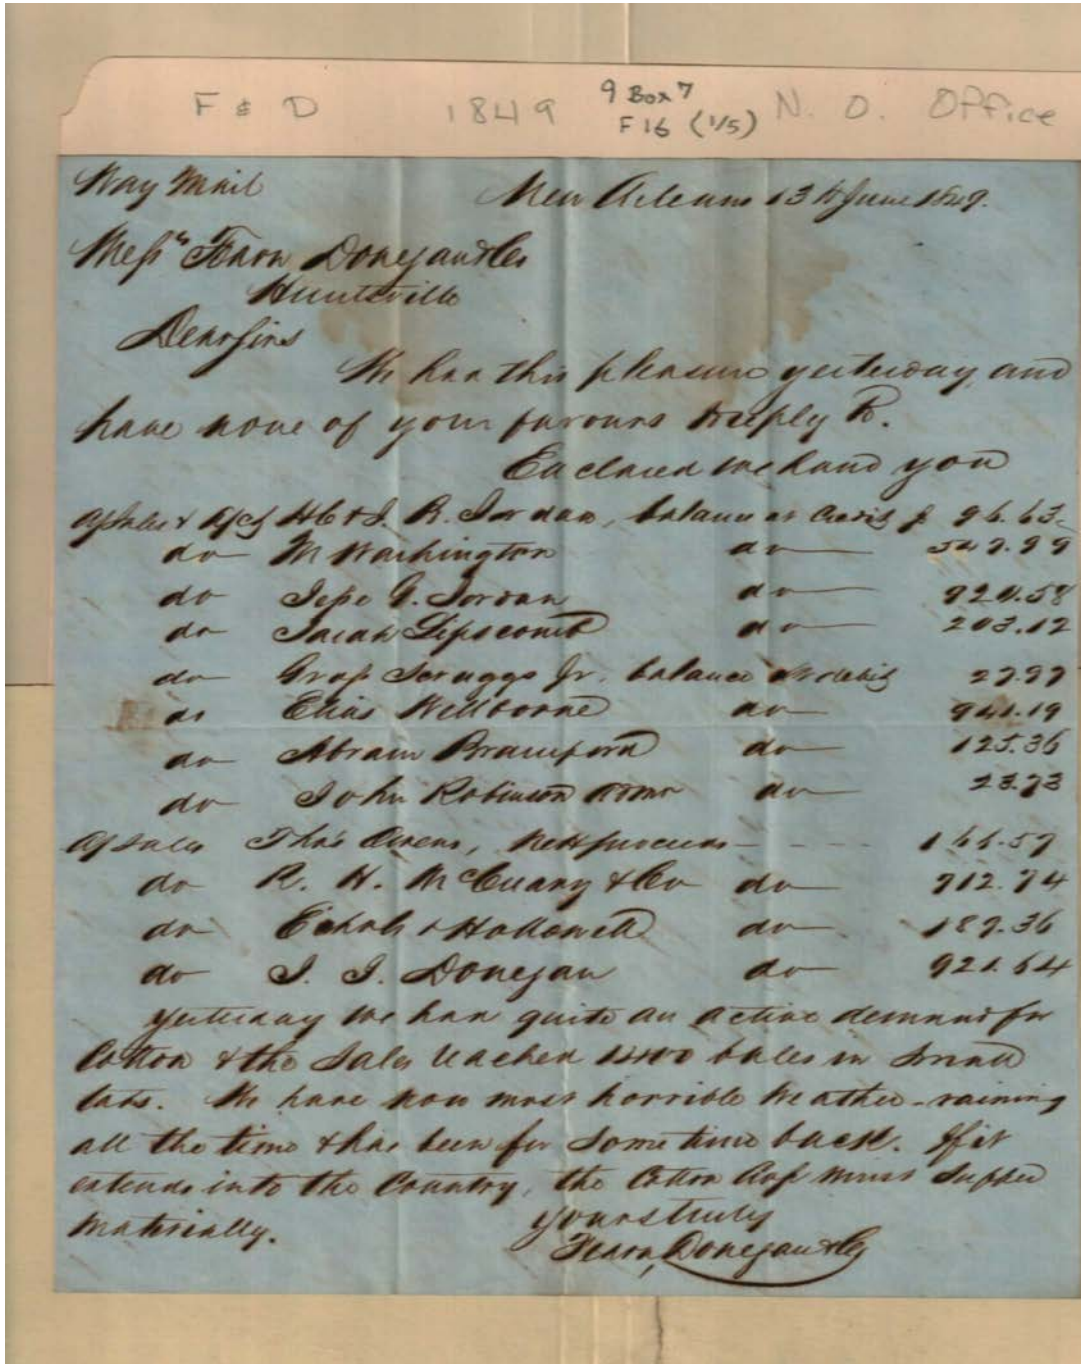 F & D 1849 9 Box 7 N. O. Office
F 16 (1/5)
Way Mail New Orleans 13th June 1849.
Messrs Fearn Donegan & Co
Huntsville
Dear Sirs
We had this pleasure yesterday and
have none of your favours to reply to.
Enclosed we hand you
A/Sales & A/C of & J. R. Jordan, balance at Credit $ 96.63
do M Washington do
do Jesse G. Jordan do
do Sarah Lipscomb do 203.12
do Scruggs Jr. balance at debit
do Elias Wellborne do
do Abram do 125.36
do John Robinson do
A/Sales Thos Owens, Nett proceeds
do R. H. & Co do
do Echols & Hollowell do
do J. J. Donegan do
Yesterday we had quite an active demand for
Cotton & the Sales reached 1400 bales in Small
lots. We have now most horrible Weather - raining
all the time & has been for Some time back. If it
extends into the Country, the Cotton Crop must Suffer
Materially.
Yours truly
Fearn, Donegan & Co